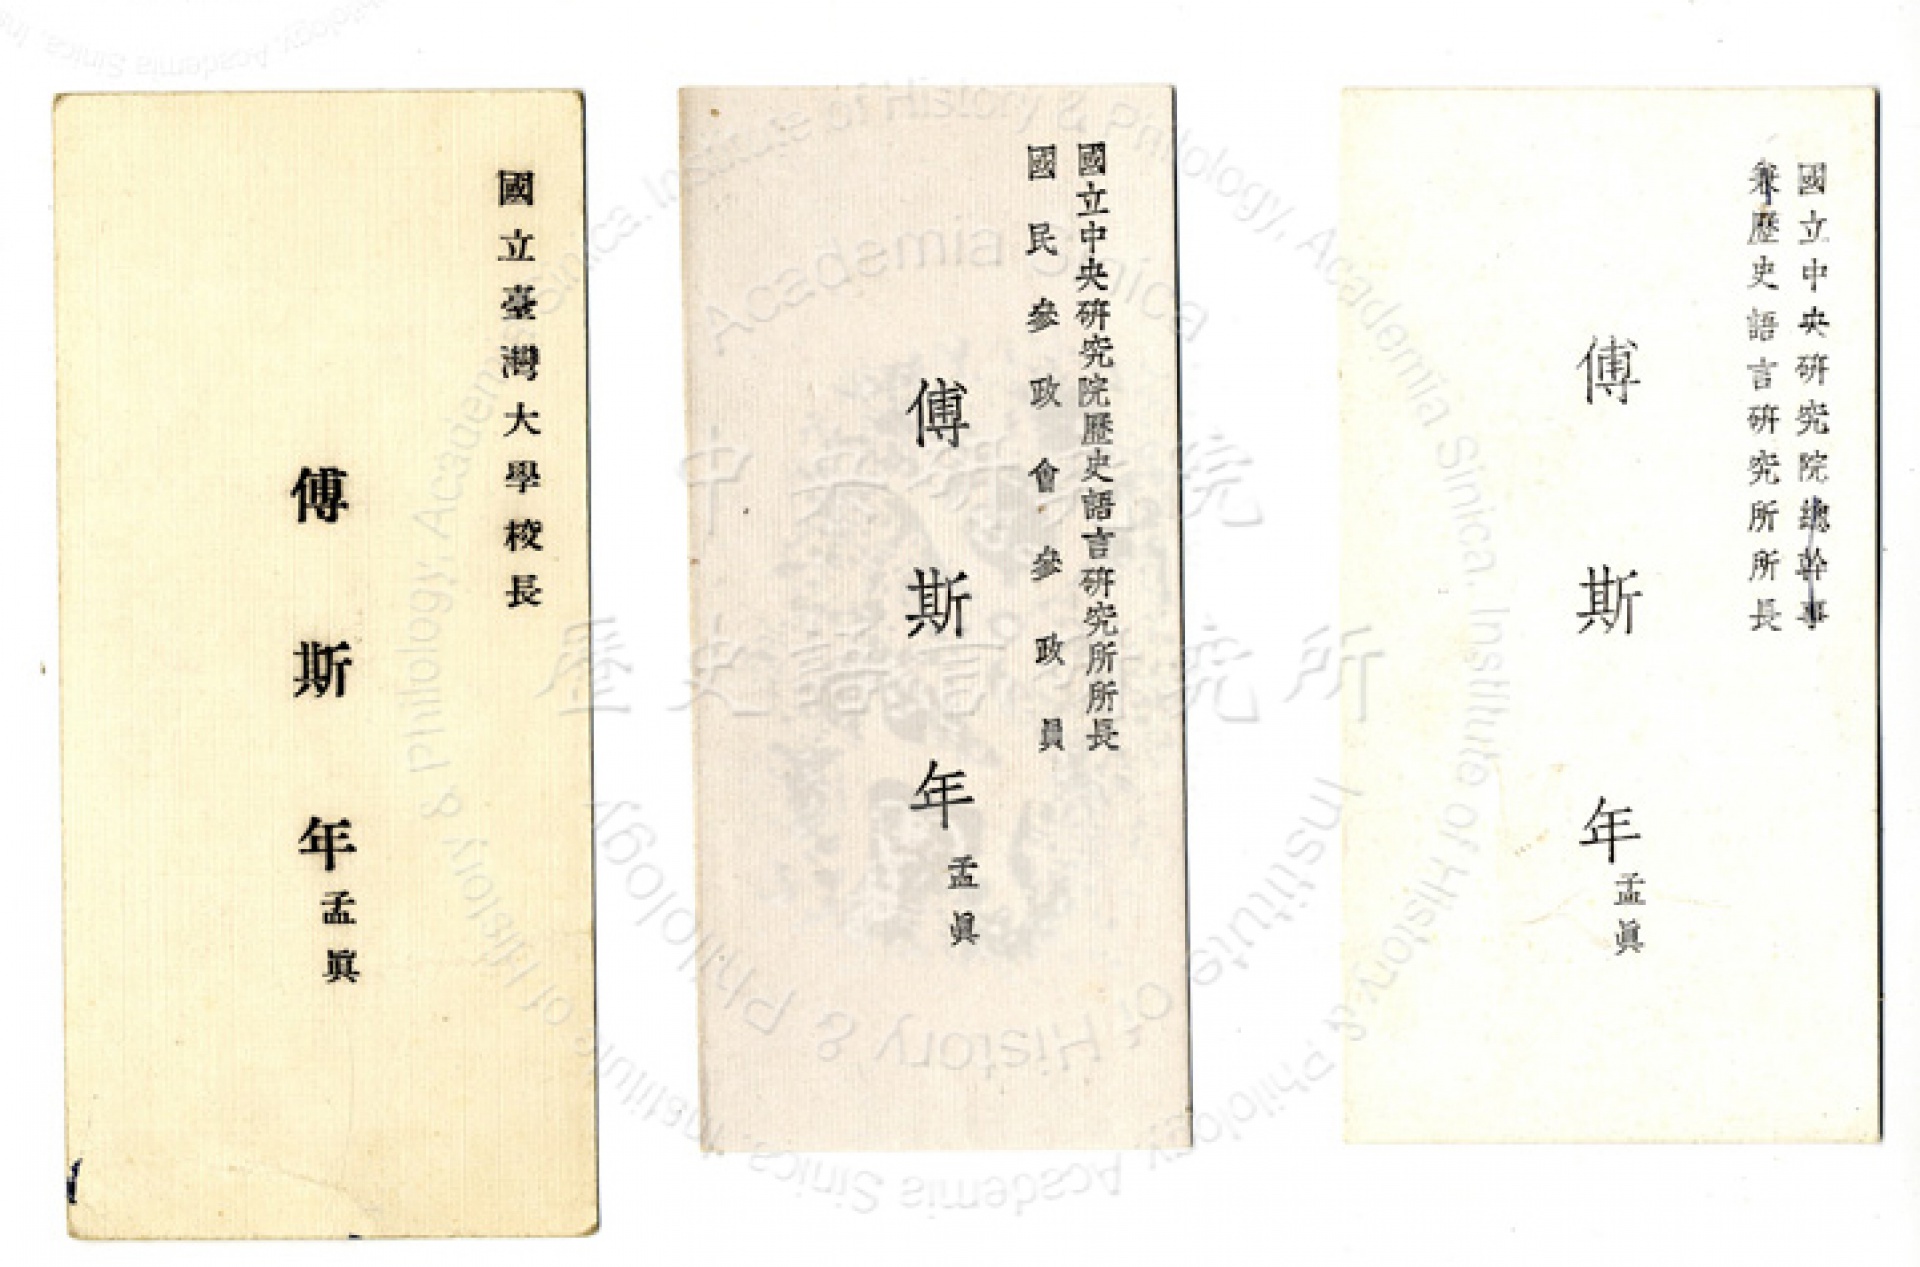 國立臺灣大學校長
傅斯年
孟眞
國立中央研究院歷史語言研究所所長
國民參政會參政員
傅斯年
孟眞
國立中央研究院總幹事
兼歷史語言研究所所長
傅斯年
孟眞
中央研究院
歷史語言研究所
Academia Sinica
Institute of History & Philology
Institute of History & Philology, Academia Sinica.